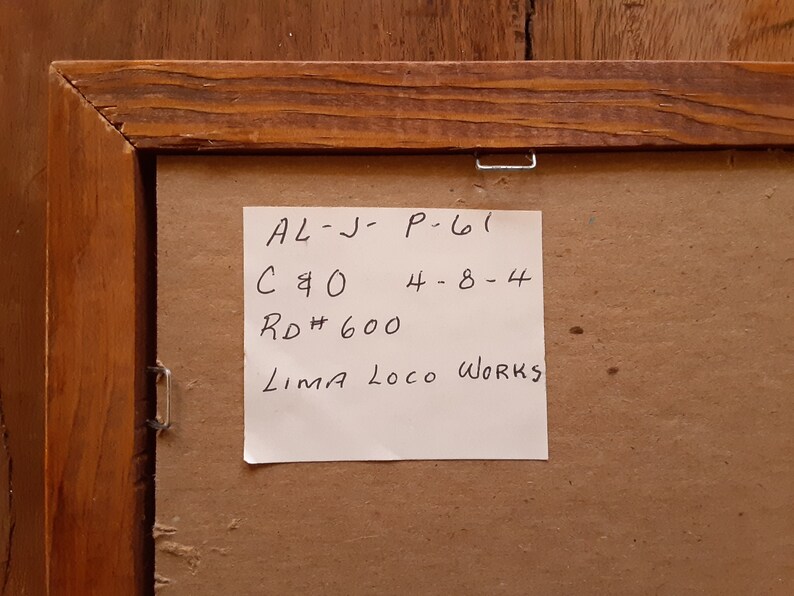 AL-J- P-61
C & O 4-8-4
RD# 600
LIMA LOCO WORKS